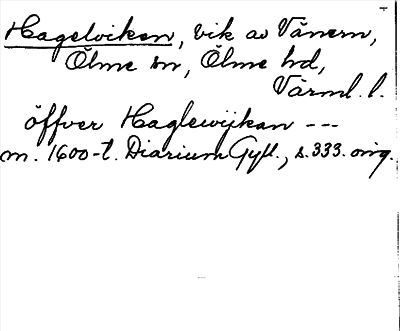 Hagelviken, vik av Vänern,
Ölme sn, Ölme hd,
Värml. l.
öffver Haglewijkan ---
m. 1600-t. Diarium Gyll., s. 333. orig.